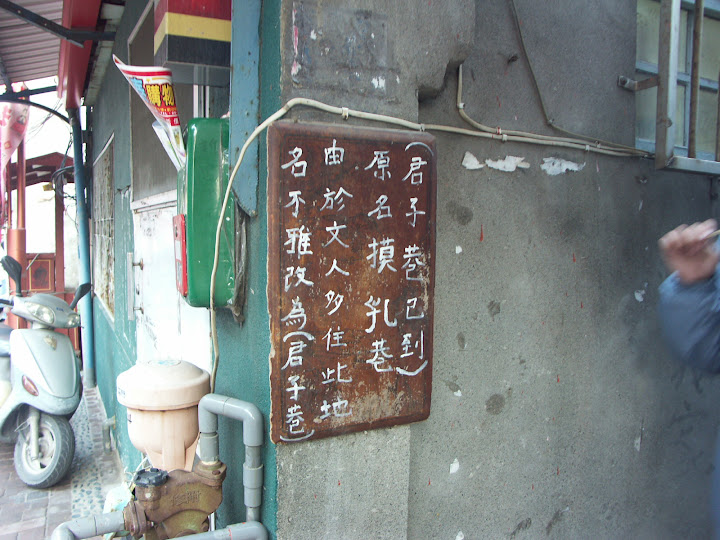 (君子巷已到)
原名摸乳巷
由於文人多住此地
名不雅改為(君子巷)
購物